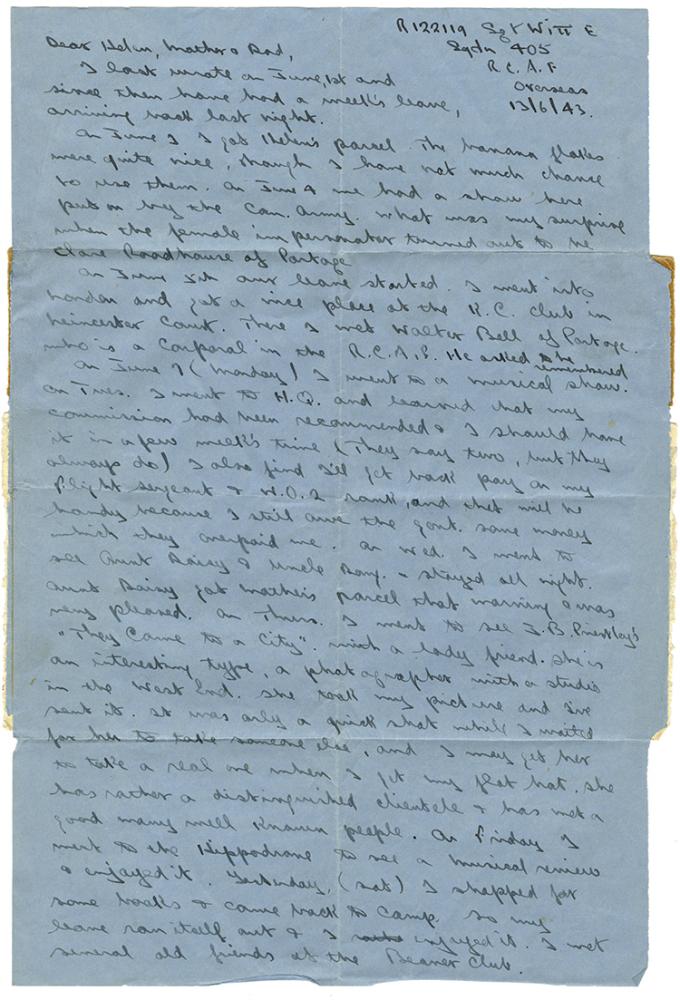 R122119 Sgt Witt E
Sqdn 405
R.C.A.F
Overseas
13/6/43.
Dear Helen, Mother & Dad,
I last wrote on June, 1st and
since then have had a week's leave,
arriving back last night.
On June 3 I got Helen's parcel. The banana flakes
were quite nice, though I have not much chance
to use them. On June 4 we had a show here
put on by the Can. Army. What was my surprise
when the female impersonator turned out to be
Clare Roadhouse of Portage
On June 5th our leave started. I went into
London and got a nice place at the K.C. Club in
Leincester Court. There I met Walter Bell of Portage.
who is a Corporal in the R.C.A.F. He asked to be remembered
On June 7 (Monday) I went to a musical show.
On Tues. I went to H.Q. and learned that my
commission had been recommended & I should have
it in a few week's time (They say two, but they
always do) I also find I'll get back pay on my
Flight sergeant & W.O.2 rank, and that will be
handy because I still owe the govt. some money
which they overpaid me. On Wed. I went to
see Aunt Daisy & Uncle & stayed all night.
Aunt Daisy got mother's parcel that morning & was
very pleased. On Thurs. I went to see J.B. Priestley's
"They Came to a City". with a lady friend. She is
an interesting type, a photographer with a studio
in the West End. She took my picture and I've
sent it. It was only a quick shot while I waited
for her to take someone else, and I may get her
to take a real one when I get my flat hat. She
has rather a distinguished clientele & has met a
good many well known people. On Friday I
went to the Hippodrome to see a musical review
& enjoyed it. Yesterday, (Sat) I shopped for
some books & came back to camp. So my
leave ran itself out & I enjoyed it. I met
several old friends at the Beaver Club.